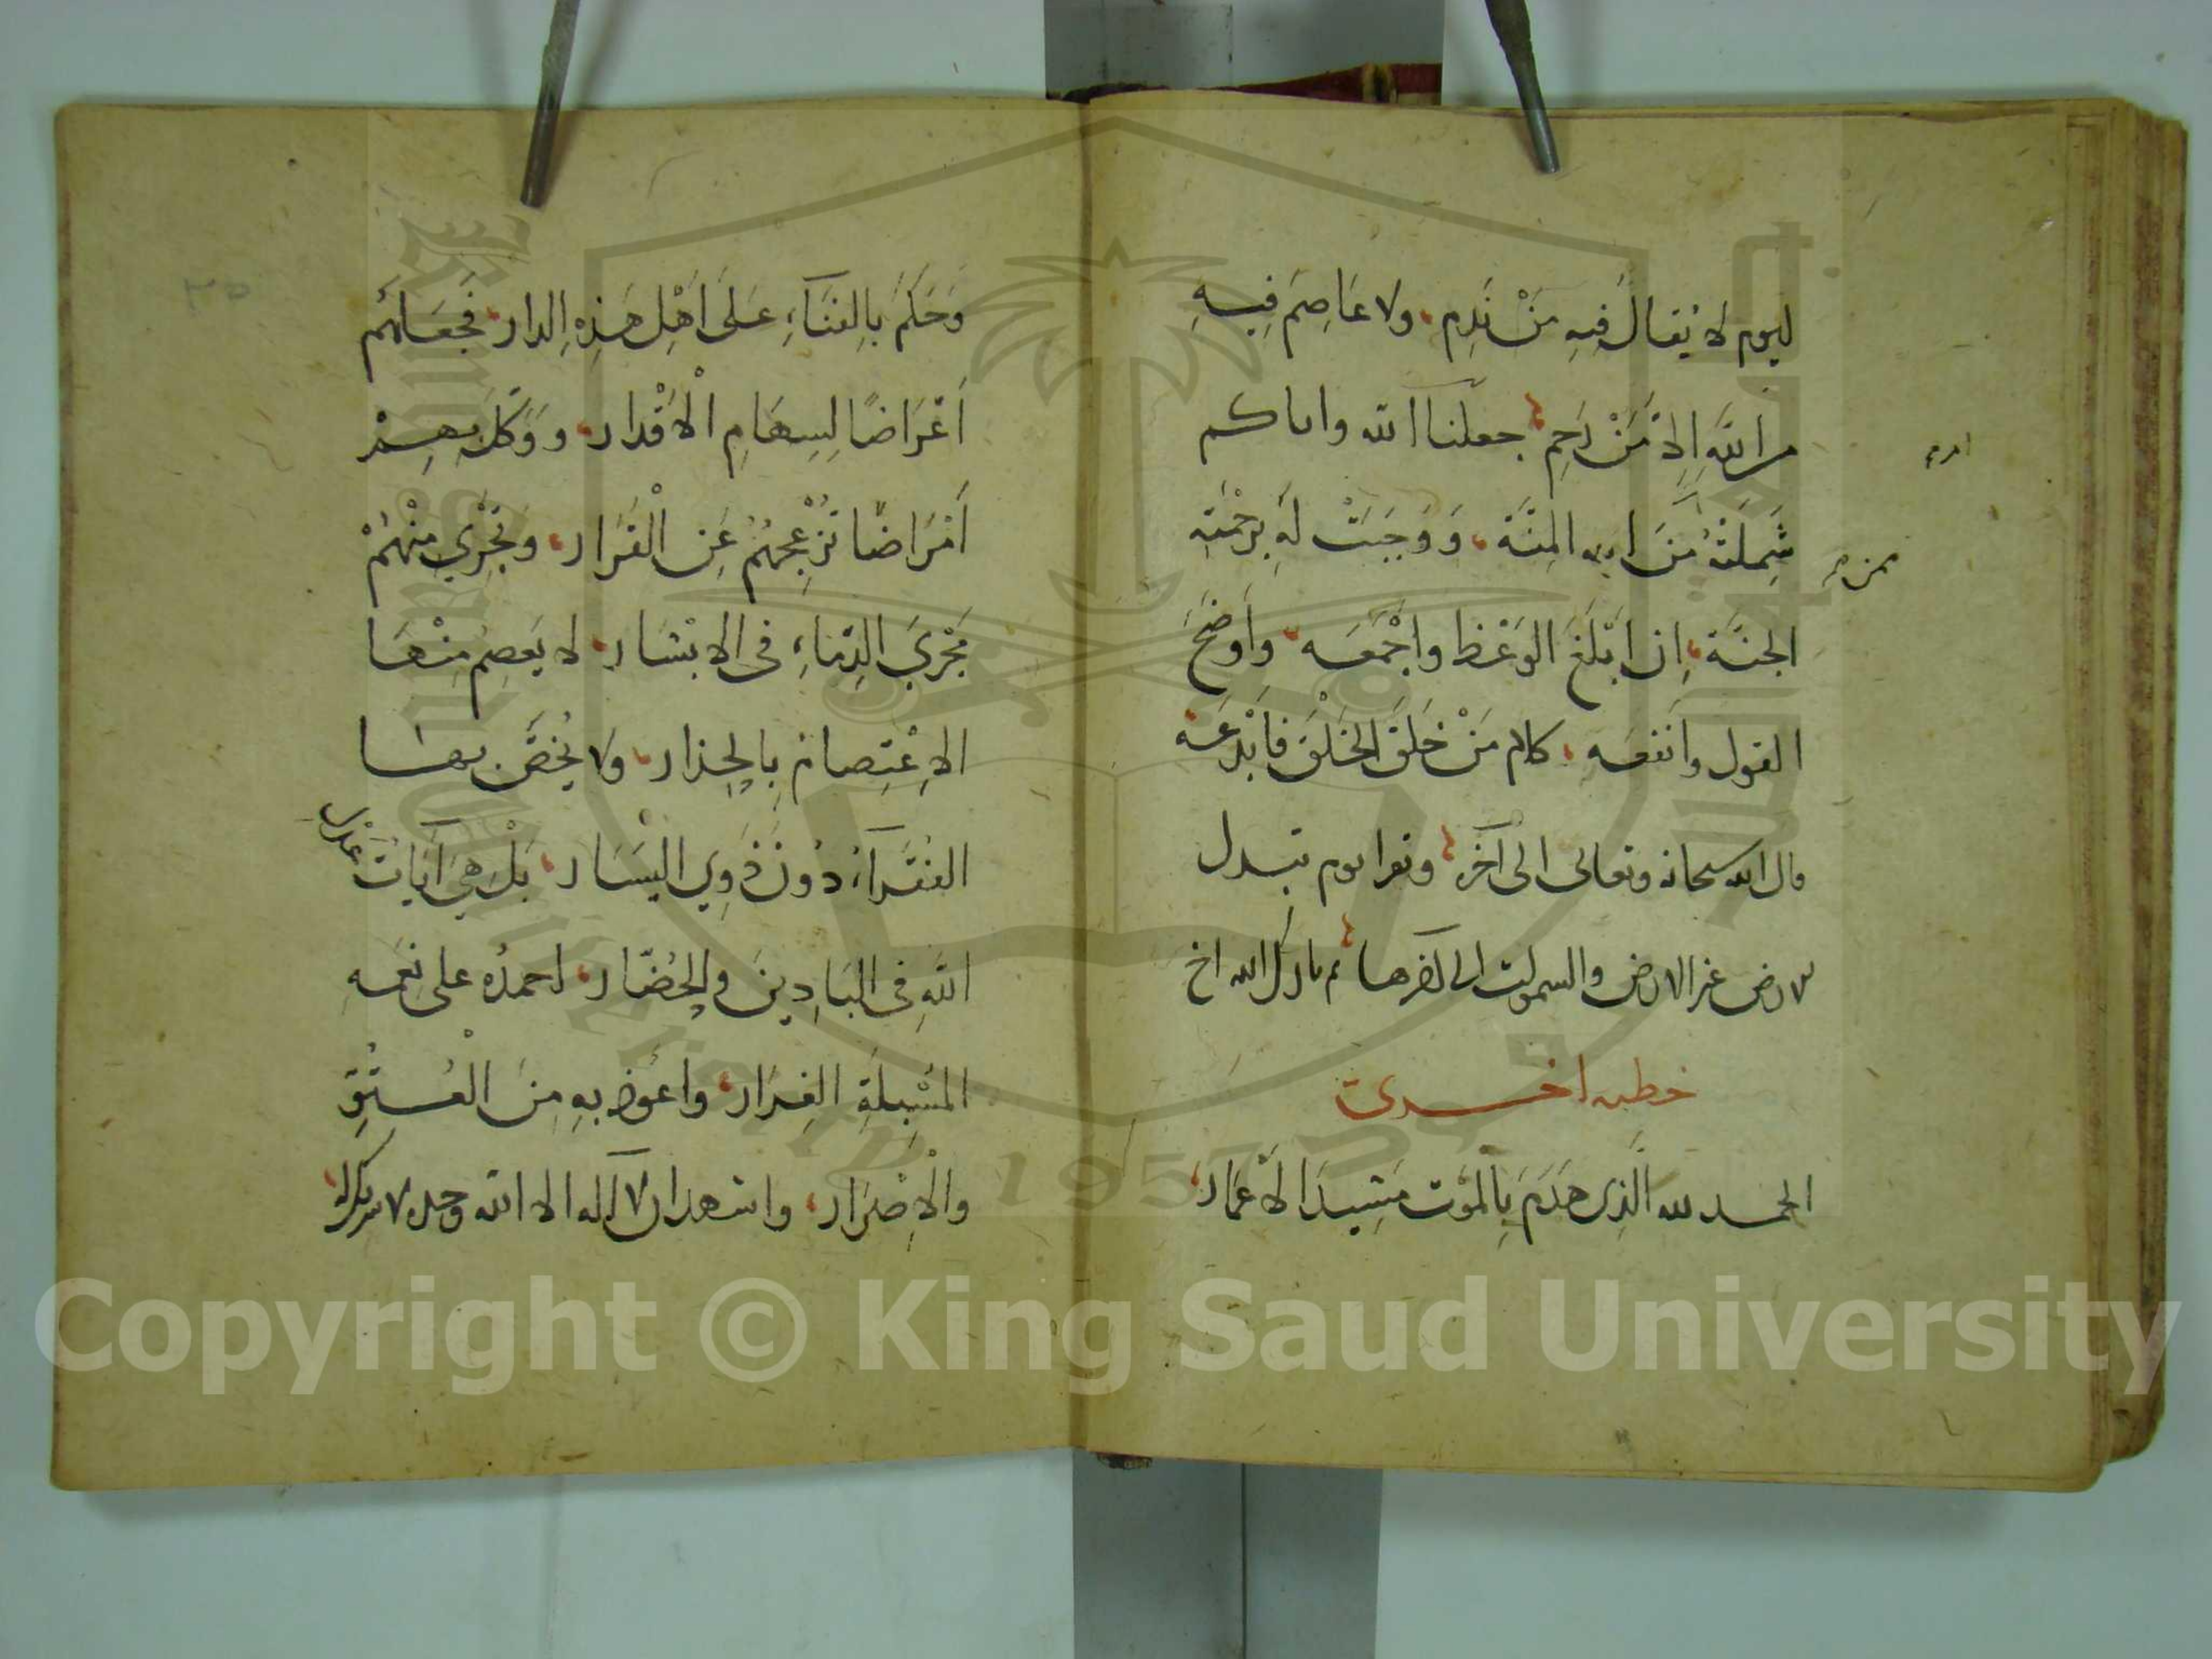 ليوم لا يُقالُ فِيهِ مَنْ نَدِم، ولا عَاصِمَ فِيهِ
من اللَّهِ اِلاَّ مَنْ رَحِم، جعلنا الله واياكم
شَمِلَتْهُ مِنَ الله المِنَّة، وَوَجَبَتْ لَهُ بِرَحْمَتِهِ
ممن
الجنَّة، اِن اَبْلَغَ الوَعْظ واَجْمَعَه، واَوضَحَ
القول وانفعه، كلام مَنْ خَلَقَ الخَلْقَ فَاَبْدَعَه
قال الله سبحانه وتعالى الى آخره، ونقرا يوم تبدل
الارض غير الارض والسموات الى اخرها، ثم بارك الله اخ
خطبه اخرى
الحمد لله الَّذِى هَدَمَ بِالمَوْت مَشِيدَ الاَعْمَار،
٣٥
وَحَكَمَ بِالفَنَآءِ عَلَى اَهْلِ هَذِهِ الدار، فَجَعَلَهُم
اَغْرَاضًا لِسِهَامِ الْاَقْدَار، وَوَكَّلَ بِهِمْ
اَمْرَاضًا تُزْعِجُهُمْ عَنِ الْقَرَار، وَتَجْرِي مِنْهُمْ
مَجْرَيَ الدِّمَاءِ فى الابْشَار، لا يَعصِمُ مِنْهَا
الاِعْتِصامُ بِالحِذار، ولا يُخَصُّ بها
الفُقَرَآءُ دُونَ ذَوِي اليَسَار، بَلْ هِيَ آيَاتُ عَدْلِ
اللَّهِ فى البَادِينَ والحُضَّار، احمدُه على نِعَمِهِ
المُسْبِلَةِ الغِزَار، واعُوذ بِهِ مِنَ الفُسُوقِ
والْاِضْرَار، واشهد ان لا اله الا الله وحده لا شريك له،
Copyright © King Saud University
King Saud University
1957